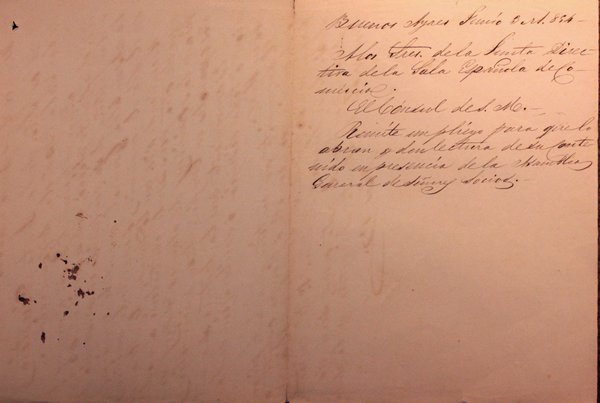 Buenos Ayres Junio 2 de 1854
A los Sres. de la Junta Direc-
tiva de la Sala Española de Co-
mercio.
El Cónsul de S. M.
Remite un pliego para que lo
abran y den lectura de su conte
nido en presencia de la
General de Señores Socios.